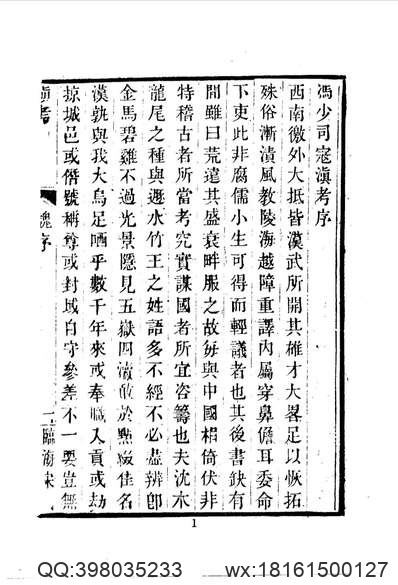 馮少司寇滇考序
西南徼外大抵皆漢武所開其雄才大畧足以恢拓
殊俗漸漬風教陵海越障重譯內屬穿鼻儋耳委命
下吏此非腐儒小生可得而輕議者也其後書缺有
間雖曰荒遠其盛衰畔服之故每與中國相倚伏非
特稽古者所當考究實謀國者所宜咨籌也夫沈木
龍尾之種與遯水竹王之姓語多不經不必盡辨卽
金馬碧雞不過光景隱見五嶽四瀆敢於點綴佳名
漢孰與我大烏足哂乎數千年來或奉職入貢或劫
掠城邑或僭號稱尊或封域自守參差不一要豈無
滇考
序
一臨海
1
QQ:398035233 wx:18161500127